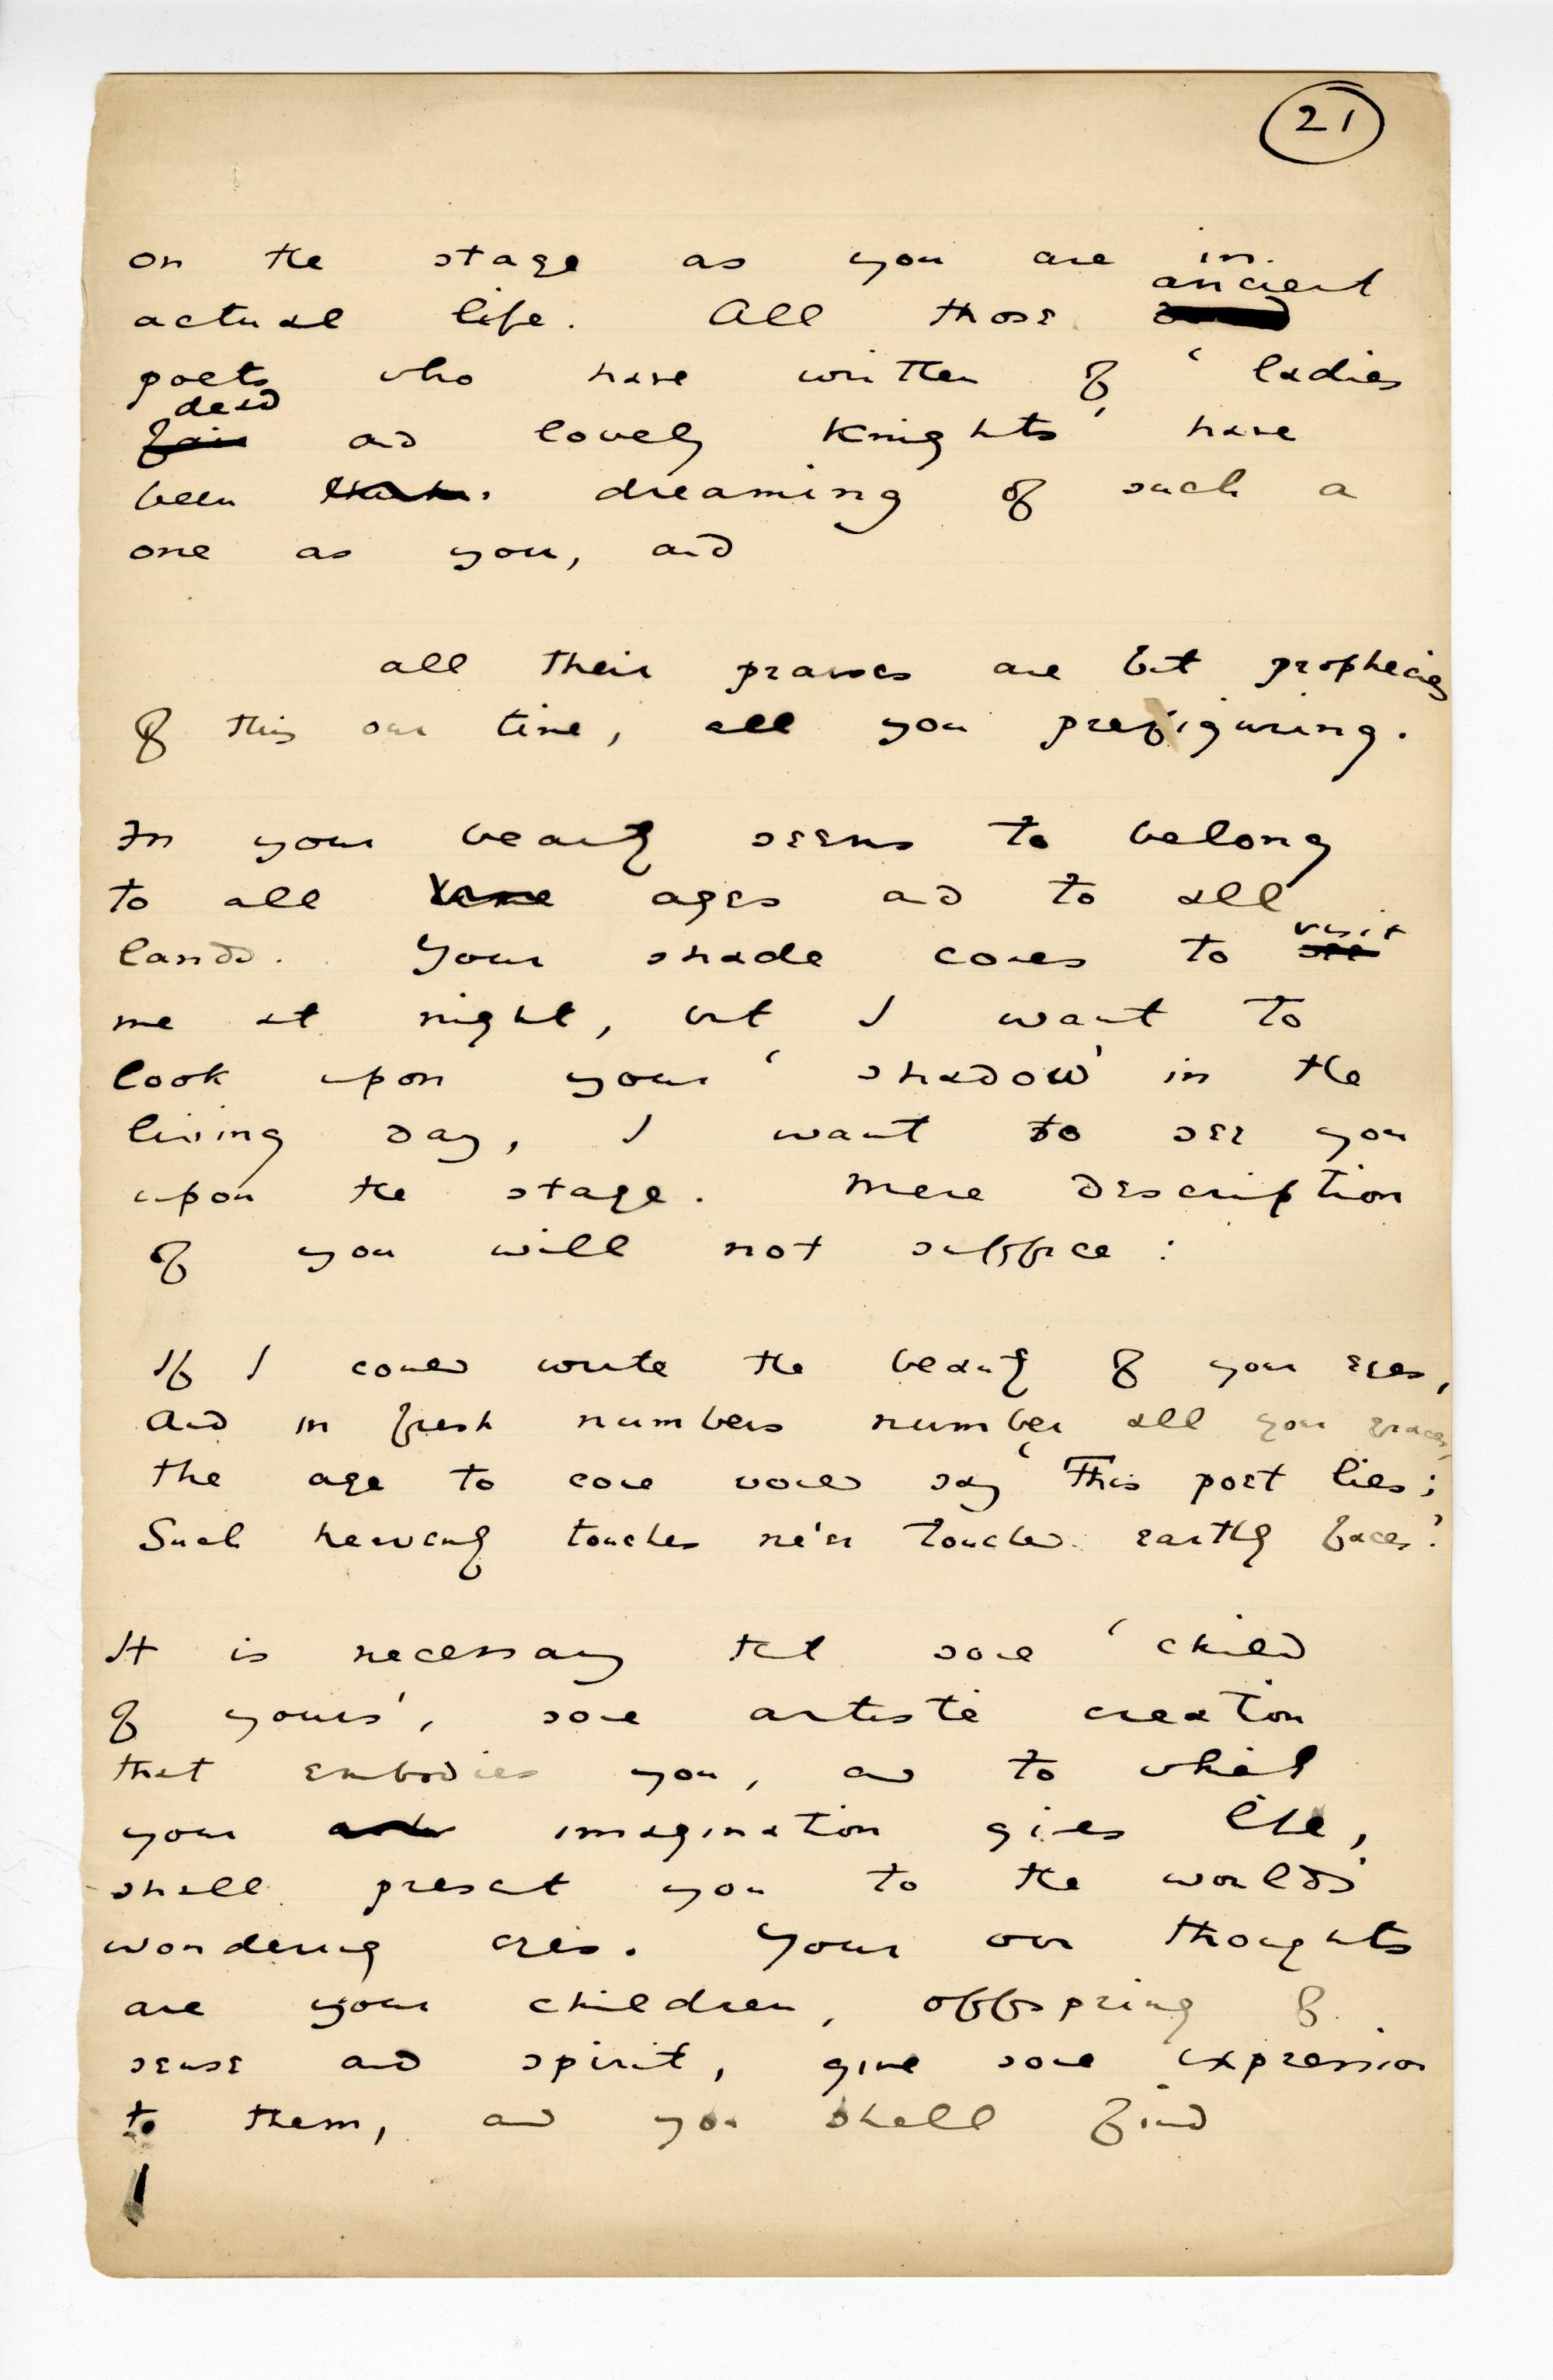 21
on the stage as you are in
ancient
actual life. All those
poets who have written of 'ladies
dead
fair and lovely Knights' have
been dreaming of such a
one as you, and
all their praises are but prophecies
Of this our time, all you prefiguring.
In your beauty seems to belong
to all ages and to all
visit
lands. Your shade comes to see
me at night, but I want to
look upon your 'shadow' in the
living day, I want to see you
upon the stage. Mere description
of you will not suffice:
If I could write the beauty of your eyes,
And in fresh numbers number all your graces,
The age to come would say 'This poet lies;
Such heavenly touches ne'er touched earthly faces.'
It is necessary that some 'child
of yours', some artistic creation
that embodies you, and to which
your imagination gives life,
shall present you to the world's
wondering eyes. Your own thoughts
are your children, offspring of
sense and spirit, give some expression
to them, and you shall find